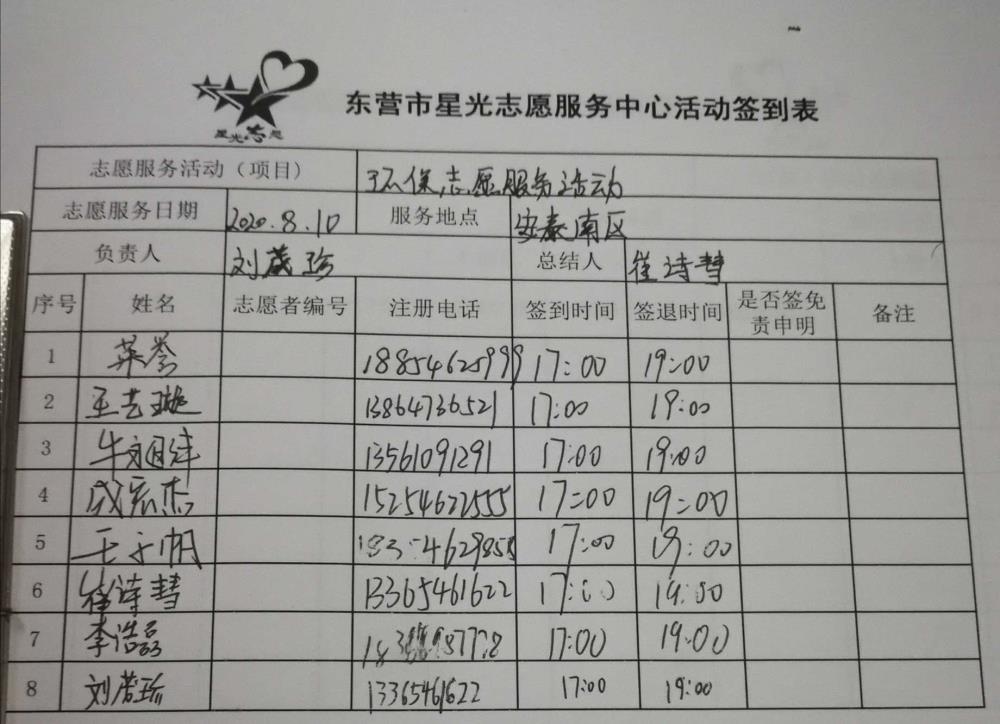 星光志愿
东营市星光志愿服务中心活动签到表
志愿服务活动（项目） 环保志愿服务活动
志愿服务日期 2020.8.10 服务地点 安泰南区
负责人 刘茂珍 总结人 崔诗慧
序号 姓名 志愿者编号 注册电话 签到时间 签退时间 是否签免责申明 备注
1 18854625999 17:00 19:00
2 王艺璇 13864736521 17:00 19:00
3 13561091291 17:00 19:00
4 成宏杰 15254622555 17:00 19:00
5 王子帆 17:00 19:00
6 崔诗慧 13365461622 17:00 19:00
7 李浩磊 17:00 19:00
8 13365461622 17:00 19:00